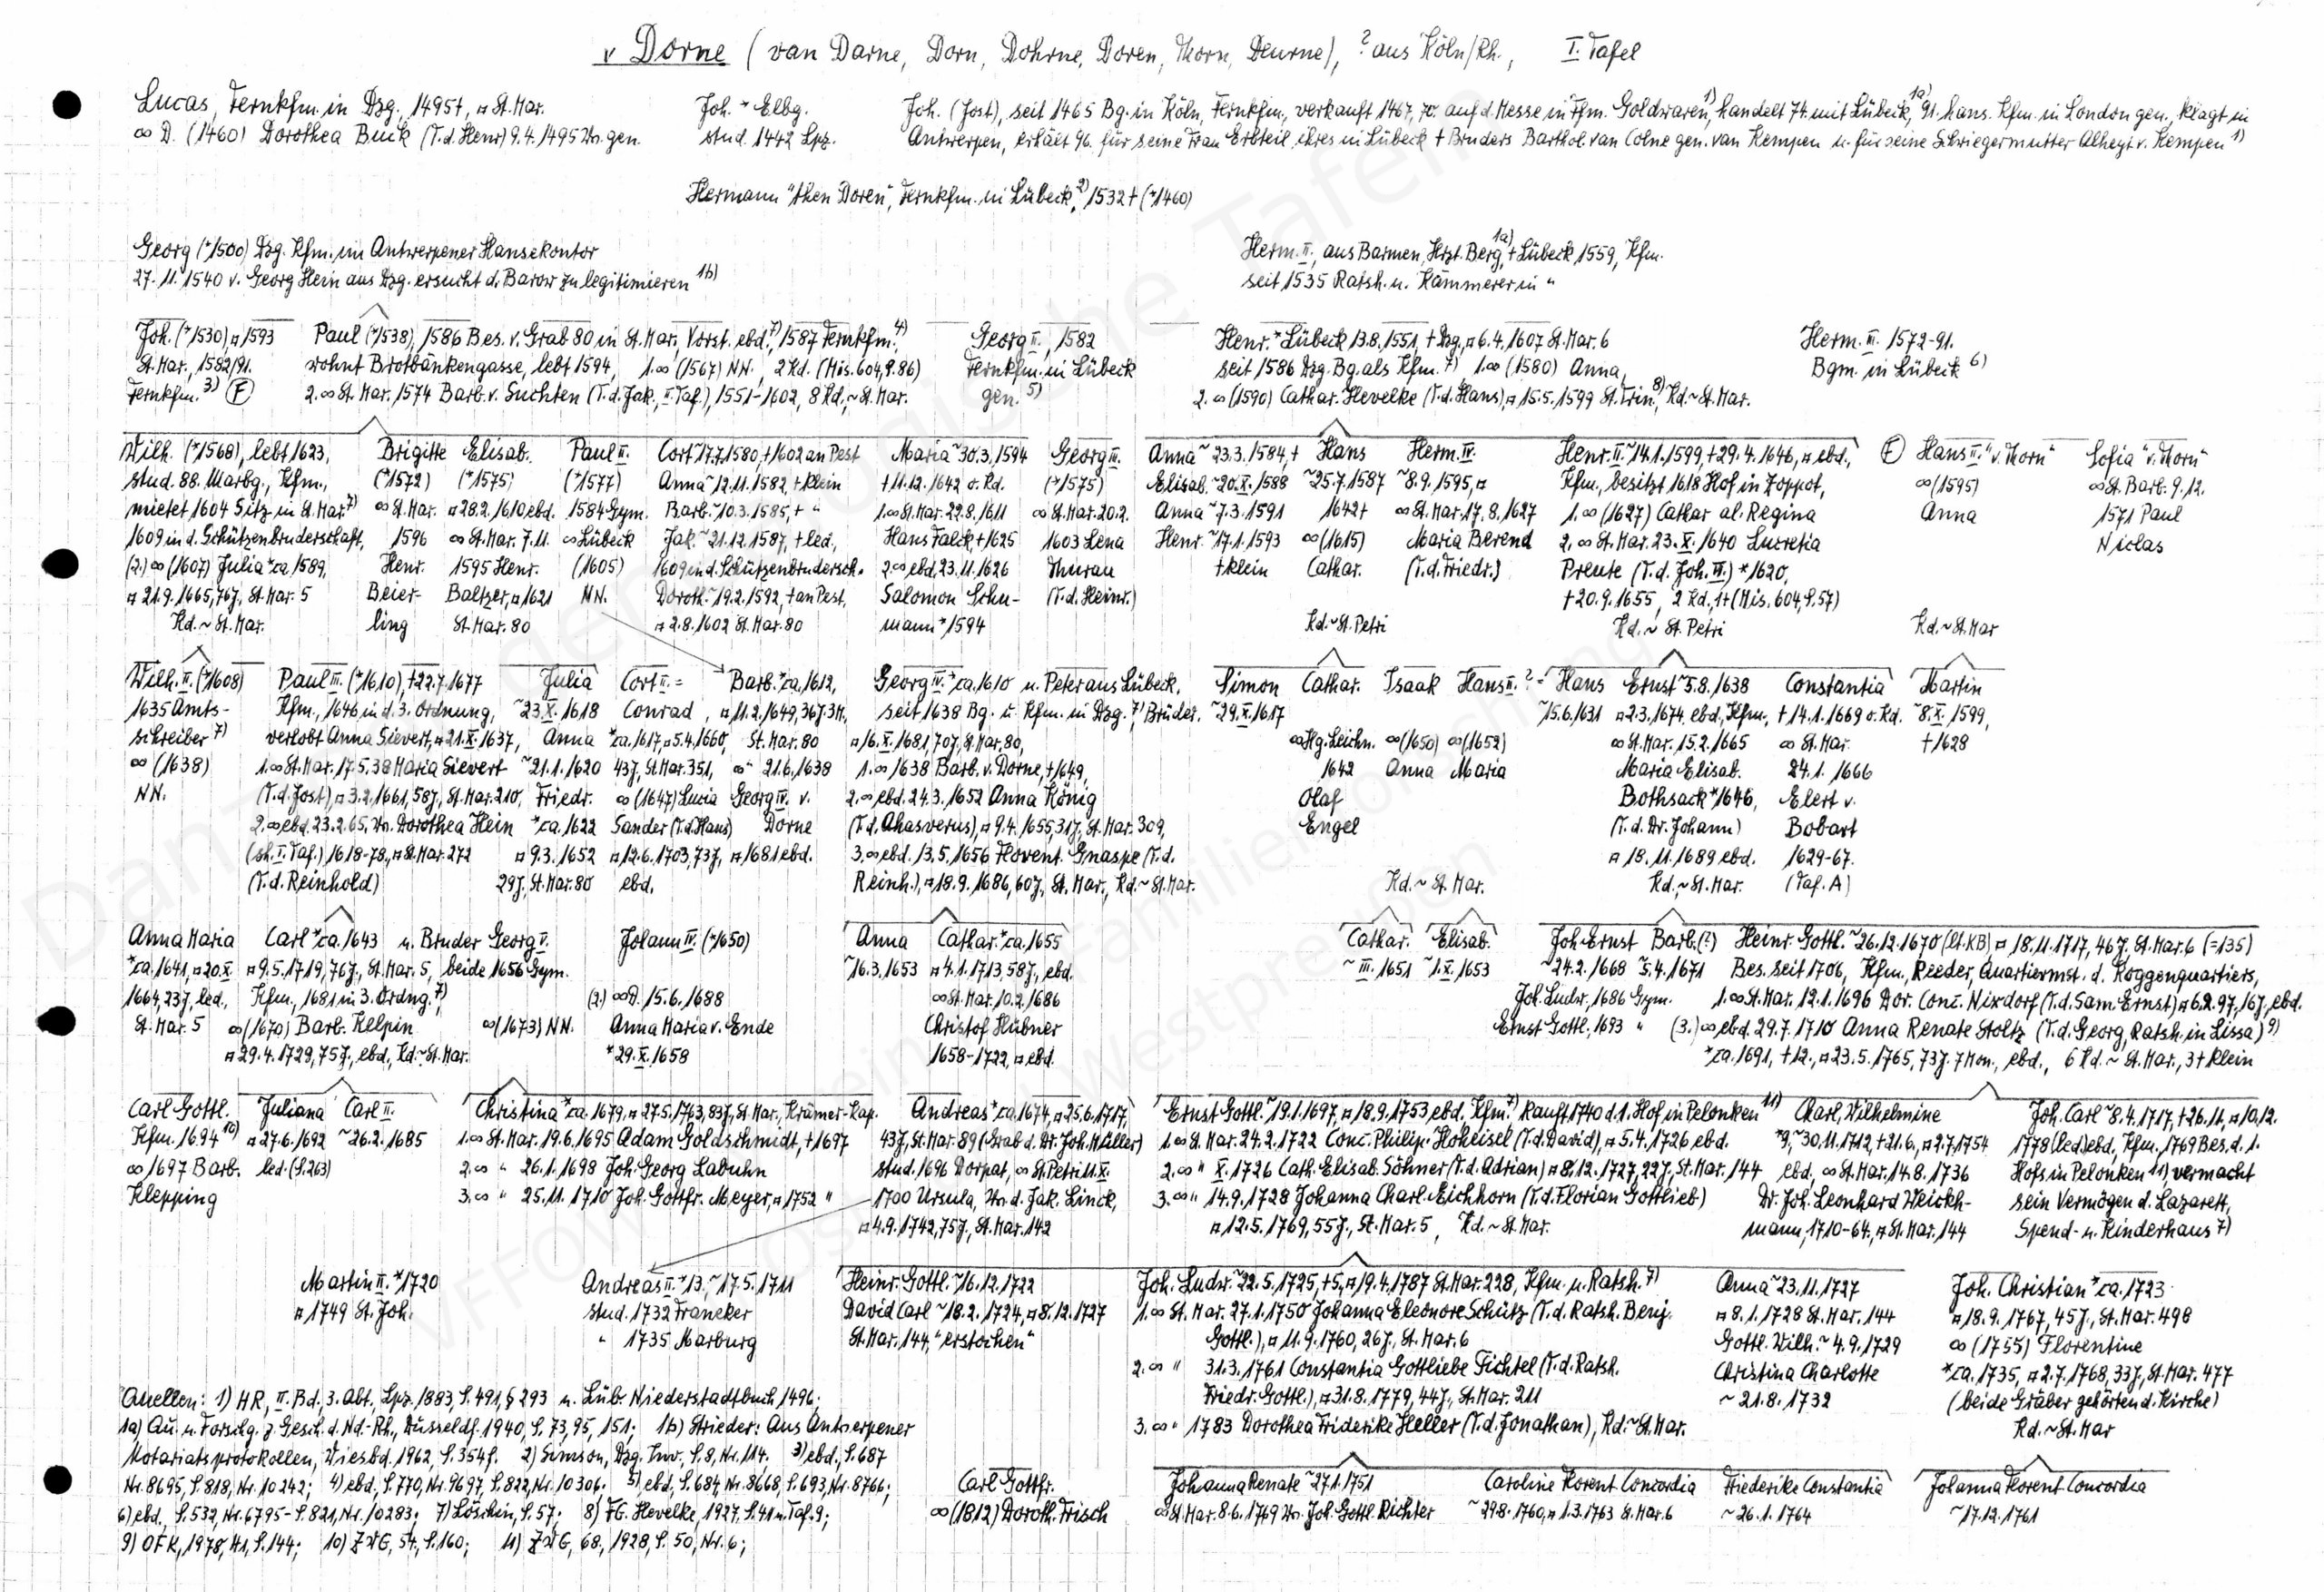 v Dorne (van Darne, Dorn, Dohrne, Doren, Thorn, Deurne), ? aus Köln/Rh., I. Tafel
Lucas, Fernkfm. in Dzg., 1495†, ¤ St. Mar.
∞ D. (1460) Dorothea Buck (T.d. Henr) 9.4.1495 Wn. gen.
Joh. * Elbg.
stud. 1442 Lpz.
Joh. (Jost), seit 1465 Bg. in Köln, Fernkfm., verkauft 1467, 70. auf d. Messe in Ffm. Goldwaren, 1) handelt 74 mit Lübeck, 1a) 91. hans. Kfm. in London gen., klagt in
Antwerpen, erhält 96. für seine Frau Erbteil ihres in Lübeck † Bruders Barthol. van Colne gen. van Kempen u. für seine Schwiegermutter Alheyt v. Kempen 1)
Hermann "then Doren", Fernkfm. in Lübeck, 2) 1532† (*1460)
Georg (*1500) Dzg. Kfm. im Antwerpener Hansekontor
27.11.1540 v. Georg Hein aus Dzg. ersucht d. Barow zu legitimieren 1b)
Herm. II., aus Barmen, Hzt. Berg, 1a) † Lübeck 1559, Kfm.
seit 1535 Ratsh. u. Kämmerer in "
Joh. (*1530), ¤ 1593
St. Mar., 1582/91.
Fernkfm. 3) (F)
Paul (*1538), 1586 Bes. v. Grab 80 in St. Mar., Vorst. ebd. 7), 1587 Fernkfm. 4)
wohnt Brotbänkengasse, lebt 1594, 1.∞ (1567) NN., 2 Kd. (Mis. 604, S. 86)
2.∞ St. Mar. 1574 Barb. v. Suchten (T.d. Jak., II. Taf.), 1551-1602, 8 Kd., ~ St. Mar.
Georg II., 1582
Fernkfm. in Lübeck
gen. 5)
Henr. * Lübeck 13.8.1551, † Dzg., ¤ 6.4.1607 St. Mar. 6
seit 1586 Dzg. Bg. als Kfm. 7) 1.∞ (1580) Anna,
2.∞ (1590) Cathar. Hevelke (T.d. Hans), ¤ 15.5.1599 St. Trin. 8), Kd. ~ St. Mar.
Herm. III. 1572-91.
Bgm. in Lübeck 6)
Wilh. (*1568), lebt 1623,
stud. 88. Marbg., Kfm.,
mietet 1604 Sitz in St. Mar. 7)
1609 in d. Schützenbruderschaft,
(2.) ∞ (1607) Julia * ca 1589,
¤ 21.9.1665, 76J., St. Mar. 5
Kd. ~ St. Mar.
Brigitte
(*1572)
∞ St. Mar.
1596
Henr.
Beier-
ling
Elisab.
(*1575)
¤ 28.2.1610 ebd.
∞ St. Mar. 7.11.
1595 Henr.
Baltzer, ¤ 1621
St. Mar. 80
Paul II.
(*1577)
1584 Gym.
∞ Lübeck
(1605)
NN.
Cort ~ 17.7.1580, † 1602 an Pest
Anna ~ 12.11.1582, † klein
Barb. ~ 10.3.1585, † "
Jak. ~ 21.12.1587, † led.,
1609 in d. Schützenbrudersch.
Doroth. ~ 19.2.1592, † an Pest,
¤ 2.8.1602 St. Mar. 80
Maria ~ 30.3.1594
† 11.12.1642 o. Kd.
1.∞ St. Mar. 22.8.1611
Hans Falck, † 1625
2.∞ ebd. 23.11.1626
Salomon Schu-
mann * 1594
Georg III.
(*1575)
∞ St. Mar. 20.2.
1603 Lena
Thurau
(T.d. Heinr.)
Anna ~ 23.3.1584, †
Elisab. ~ 20.X.1588
Anna ~ 7.3.1591
Henr. ~ 17.1.1593
† klein
Hans
~ 25.7.1587
1642†
∞ (1615)
Cathar.
Kd. ~ St. Petri
Herm. IV.
~ 8.9.1595, ¤
∞ St. Mar. 17.8.1627
Maria Berend
(T.d. Friedr.)
Henr. II. ~ 14.1.1599, † 29.4.1646, ¤ ebd.,
Kfm., besitzt 1618 Hof in Zoppot,
1.∞ (1627) Cathar al. Regina
2.∞ St. Mar. 23.X.1640 Lucretia
Preute (T.d. Joh. III.) * 1620,
† 20.9.1655, 2 Kd., 1† (Mis. 604, S. 57)
Kd. ~ St. Petri
(F) Hans II. "v. Thorn"
∞ (1595)
Anna
Kd. ~ St. Mar
Sofia "v. Thorn"
∞ St. Barb. 9.12.
1571 Paul
Niclas
Wilh. II. (*1608)
1635 Amts-
schreiber 7)
∞ (1638)
NN.
Paul III. (*1610), † 22.7.1677
Kfm., 1646 in d. 3. Ordnung,
verlobt Anna Sievert, ¤ 21.X.1637,
1.∞ St. Mar. 17.5.38 Maria Sievert
(T.d. Jost), ¤ 3.2.1661, 58J., St. Mar. 210,
2.∞ ebd. 23.2.65, Wn. Dorothea Hein
(sh. I. Taf.) 1618-78, ¤ St. Mar. 272
(T.d. Reinhold)
Julia
~ 23.X.1618
Anna
~ 21.1.1620
Friedr.
* ca. 1622
¤ 9.3.1652
29J., St. Mar. 80
Cort II. =
Conrad,
* ca. 1617, ¤ 5.4.1660,
43J., St. Mar. 351,
∞ (1647) Lucia
Sander (T.d. Hans)
¤ 12.6.1703, 73J.,
ebd.
Barb. * ca. 1612,
¤ 11.2.1649, 36J. 3M.,
St. Mar. 80
∞ " 21.6.1638
Georg IV. v.
Dorne
¤ 1681 ebd.
Georg IV. * ca. 1610 u. Peter aus Lübeck,
seit 1638 Bg. u. Kfm. in Dzg. 7) Brüder.
¤ 16.X.1681, 70J., St. Mar. 80,
1.∞ 1638 Barb. v. Dorne, † 1649,
2.∞ ebd. 24.3.1652 Anna König
(T.d. Ahasverus), ¤ 9.4.1655, 31J., St. Mar. 309,
3.∞ ebd. 13.5.1656 Florent. Gnaspe (T.d.
Reinh.), ¤ 18.9.1686, 60J., St. Mar., Kd. ~ St. Mar.
Simon
~ 29.X.1617
Cathar.
∞ Hg. Leichn.
1642
Olaf
Engel
Isaak
∞ (1650)
Anna
Kd. ~ St. Mar.
Hans II. ? =
∞ (1652)
Maria
Hans
~ 15.6.1631
Ernst ~ 5.8.1638
¤ 2.3.1674, ebd., Kfm.,
∞ St. Mar. 15.2.1665
Maria Elisab.
Bothsack * 1646,
(T.d. Dr. Johann)
¤ 18.11.1689 ebd.
Kd. ~ St. Mar.
Constantia
† 14.1.1669 o. Kd.
∞ St. Mar.
24.1.1666
Elert v.
Bobart
1629-67.
(Taf. A)
Martin
~ 8.X.1599,
† 1628
Anna Maria
* ca. 1641, ¤ 20.X.
1664, 23J., led.,
St. Mar. 5
Carl * ca. 1643 u. Bruder Georg V.
¤ 9.5.1719, 76J., St. Mar. 5, beide 1656 Gym.
Kfm., 1681 in 3. Ordng. 7)
∞ (1670) Barb. Kelpin ∞ (1673) NN.
¤ 29.4.1729, 75J., ebd., Kd. ~ St. Mar.
Johann IV. (*1650)
(2.) ∞ D. 15.6.1688
Anna Maria v. Ende
* 29.X.1658
Anna
~ 16.3.1653
Cathar. * ca. 1655
¤ 4.1.1713, 58J., ebd.
∞ St. Mar. 10.2.1686
Christof Hübner
1658-1722, ¤ ebd.
Cathar.
~ III.1651
Elisab.
~ 1.X.1653
Joh. Ernst
~ 24.2.1668
Barb. (?)
~ 5.4.1671
Joh. Ludw., 1686 Gym.
Ernst Gottl., 1693 "
Heinr. Gottl. ~ 26.12.1670 (lt. KB) ¤ 18.11.1717, 46J., St. Mar. 6 (=135)
Bes. seit 1706, Kfm., Reeder, Quartiermst. d. Roggenquartiers,
1.∞ St. Mar. 12.1.1696 Dor. Conc. Nixdorf (T.d. Sam. Ernst) ¤ 6.2.97, 16J., ebd.
(3.) ∞ ebd. 29.7.1710 Anna Renate Stoltz (T.d. Georg, Ratsh. in Lissa) 9)
* ca. 1691, † 12., ¤ 23.5.1765, 73J. 7 Mon., ebd., 6 Kd. ~ St. Mar., 3 † klein
Carl Gottl.
Kfm. 1694 10)
∞ 1697 Barb.
Klepping
Juliana
¤ 27.6.1692
led. (S. 263)
Carl II.
~ 26.2.1685
Christina * ca. 1679, ¤ 27.5.1763, 83J., St. Mar., Krämer-Kap.
1.∞ St. Mar. 19.6.1695 Adam Goldschmidt, † 1697
2.∞ " 26.1.1698 Joh. Georg Labuhn
3.∞ " 25.11.1710 Joh. Gottfr. Meyer, ¤ 1752 "
Andreas * ca. 1674, ¤ 25.6.1717,
43J., St. Mar. 89 (Grab d. Dr. Joh. Müller)
stud. 1696 Dorpat, ∞ St. Petri 11.X.
1700 Ursula, Wn. d. Jak. Linck,
¤ 4.9.1742, 75J., St. Mar. 142
Ernst Gottl. ~ 19.1.1697, ¤ 18.9.1753 ebd. Kfm. 7) kauft 1740 d. 1. Hof in Pelonken 11)
1.∞ St. Mar. 24.2.1722 Conc. Philip. Hoheisel (T.d. David), ¤ 5.4.1726 ebd.
2.∞ " X.1726 Cath. Elisab. Söhner (T.d. Adrian) ¤ 8.12.1727, 22J., St. Mar. 144
3.∞ " 14.9.1728 Johanna Charl. Eichhorn (T.d. Florian Gottlieb)
¤ 12.5.1769, 55J., St. Mar. 5, Kd. ~ St. Mar.
Charl. Wilhelmine
* 9., ~ 30.11.1712, † 21.6., ¤ 2.7.1754
ebd, ∞ St. Mar. 14.8.1736
Dr. Joh. Leonhard Weickh-
mann, 1710-64., ¤ St. Mar. 144
Joh. Carl ~ 8.4.1717, † 26.11., ¤ 10.12.
1778 (led) ebd., Kfm., 1769 Bes. d. 1.
Hofs in Pelonken 11), vermacht
sein Vermögen d. Lazarett,
Spend- u. Kinderhaus 7)
Martin II. * 1720
¤ 1749 St. Joh.
Andreas II. * 13., ~ 17.5.1711
stud. 1732 Franeker
" 1735 Marburg
Heinr. Gottl. ~ 16.12.1722
David Carl ~ 18.2.1724, ¤ 8.12.1727
St. Mar. 144, "erstochen"
Joh. Ludw. ~ 22.5.1725, † 5., ¤ 19.4.1787 St. Mar. 228, Kfm. u. Ratsh. 7)
1.∞ St. Mar. 27.1.1750 Johanna Eleonore Schütz (T.d. Ratsh. Benj.
Gottl.), ¤ 11.9.1760, 26J., St. Mar. 6
2.∞ " 31.3.1761 Constantia Gottliebe Fichtel (T.d. Ratsh.
Friedr. Gottl.), ¤ 31.8.1779, 44J., St. Mar. 211
3.∞ " 1783 Dorothea Friderike Heller (T.d. Jonathan), Kd. ~ St. Mar.
Anna ~ 23.11.1727
¤ 8.1.1728 St. Mar. 144
Gottl. Wilh. ~ 4.9.1729
Christina Charlotte
~ 21.8.1732
Joh. Christian * ca. 1723
¤ 18.9.1767, 45J., St. Mar. 498
∞ (1755) Florentine
* ca. 1735, ¤ 2.7.1768, 33J., St. Mar. 477
(beide Gräber gehörten d. Kirche)
Kd. ~ St. Mar
Quellen: 1) HR, II. Bd., 3. Abt., Lpz. 1883, S. 491, § 293 u. Lüb. Niederstadtbuch 1496;
1a) Qu. u. Forschg. z. Gesch. d. Nd.-Rh., Düsseldf. 1940, S. 73, 95, 151; 1b) Strieder: Aus Antwerpener
Notariatsprotokollen, Wiesbd. 1962, S. 354f. 2) Simson, Dzg. Inv., S. 8, Nr. 114. 3) ebd., S. 687
Nr. 8695, S. 818, Nr. 10242; 4) ebd., S. 770, Nr. 9697, S. 822, Nr. 10306. 5) ebd., S. 684, Nr. 8668, S. 693, Nr. 8766;
6) ebd. S. 532, Nr. 6795 - S. 821, Nr. 10283; 7) Löschin, S. 57; 8) FG. Hevelke, 1927, S. 41 u. Taf. 9;
9) OFK, 1978, H1, S. 144; 10) ZWG, 54, S. 160; 11) ZWG, 68., 1928, S. 50, Nr. 6;
Carl Gottfr.
∞ (1812) Doroth. Frisch
Johanna Renate ~ 27.1.1751
∞ St. Mar. 8.6.1769 Wr. Joh. Gottl. Richter
Caroline Florent Concordia
~ 29.8.1760, ¤ 1.3.1763 St. Mar. 6
Friederike Constantia
~ 26.1.1764
Johanna Florent Concordia
~ 17.12.1761